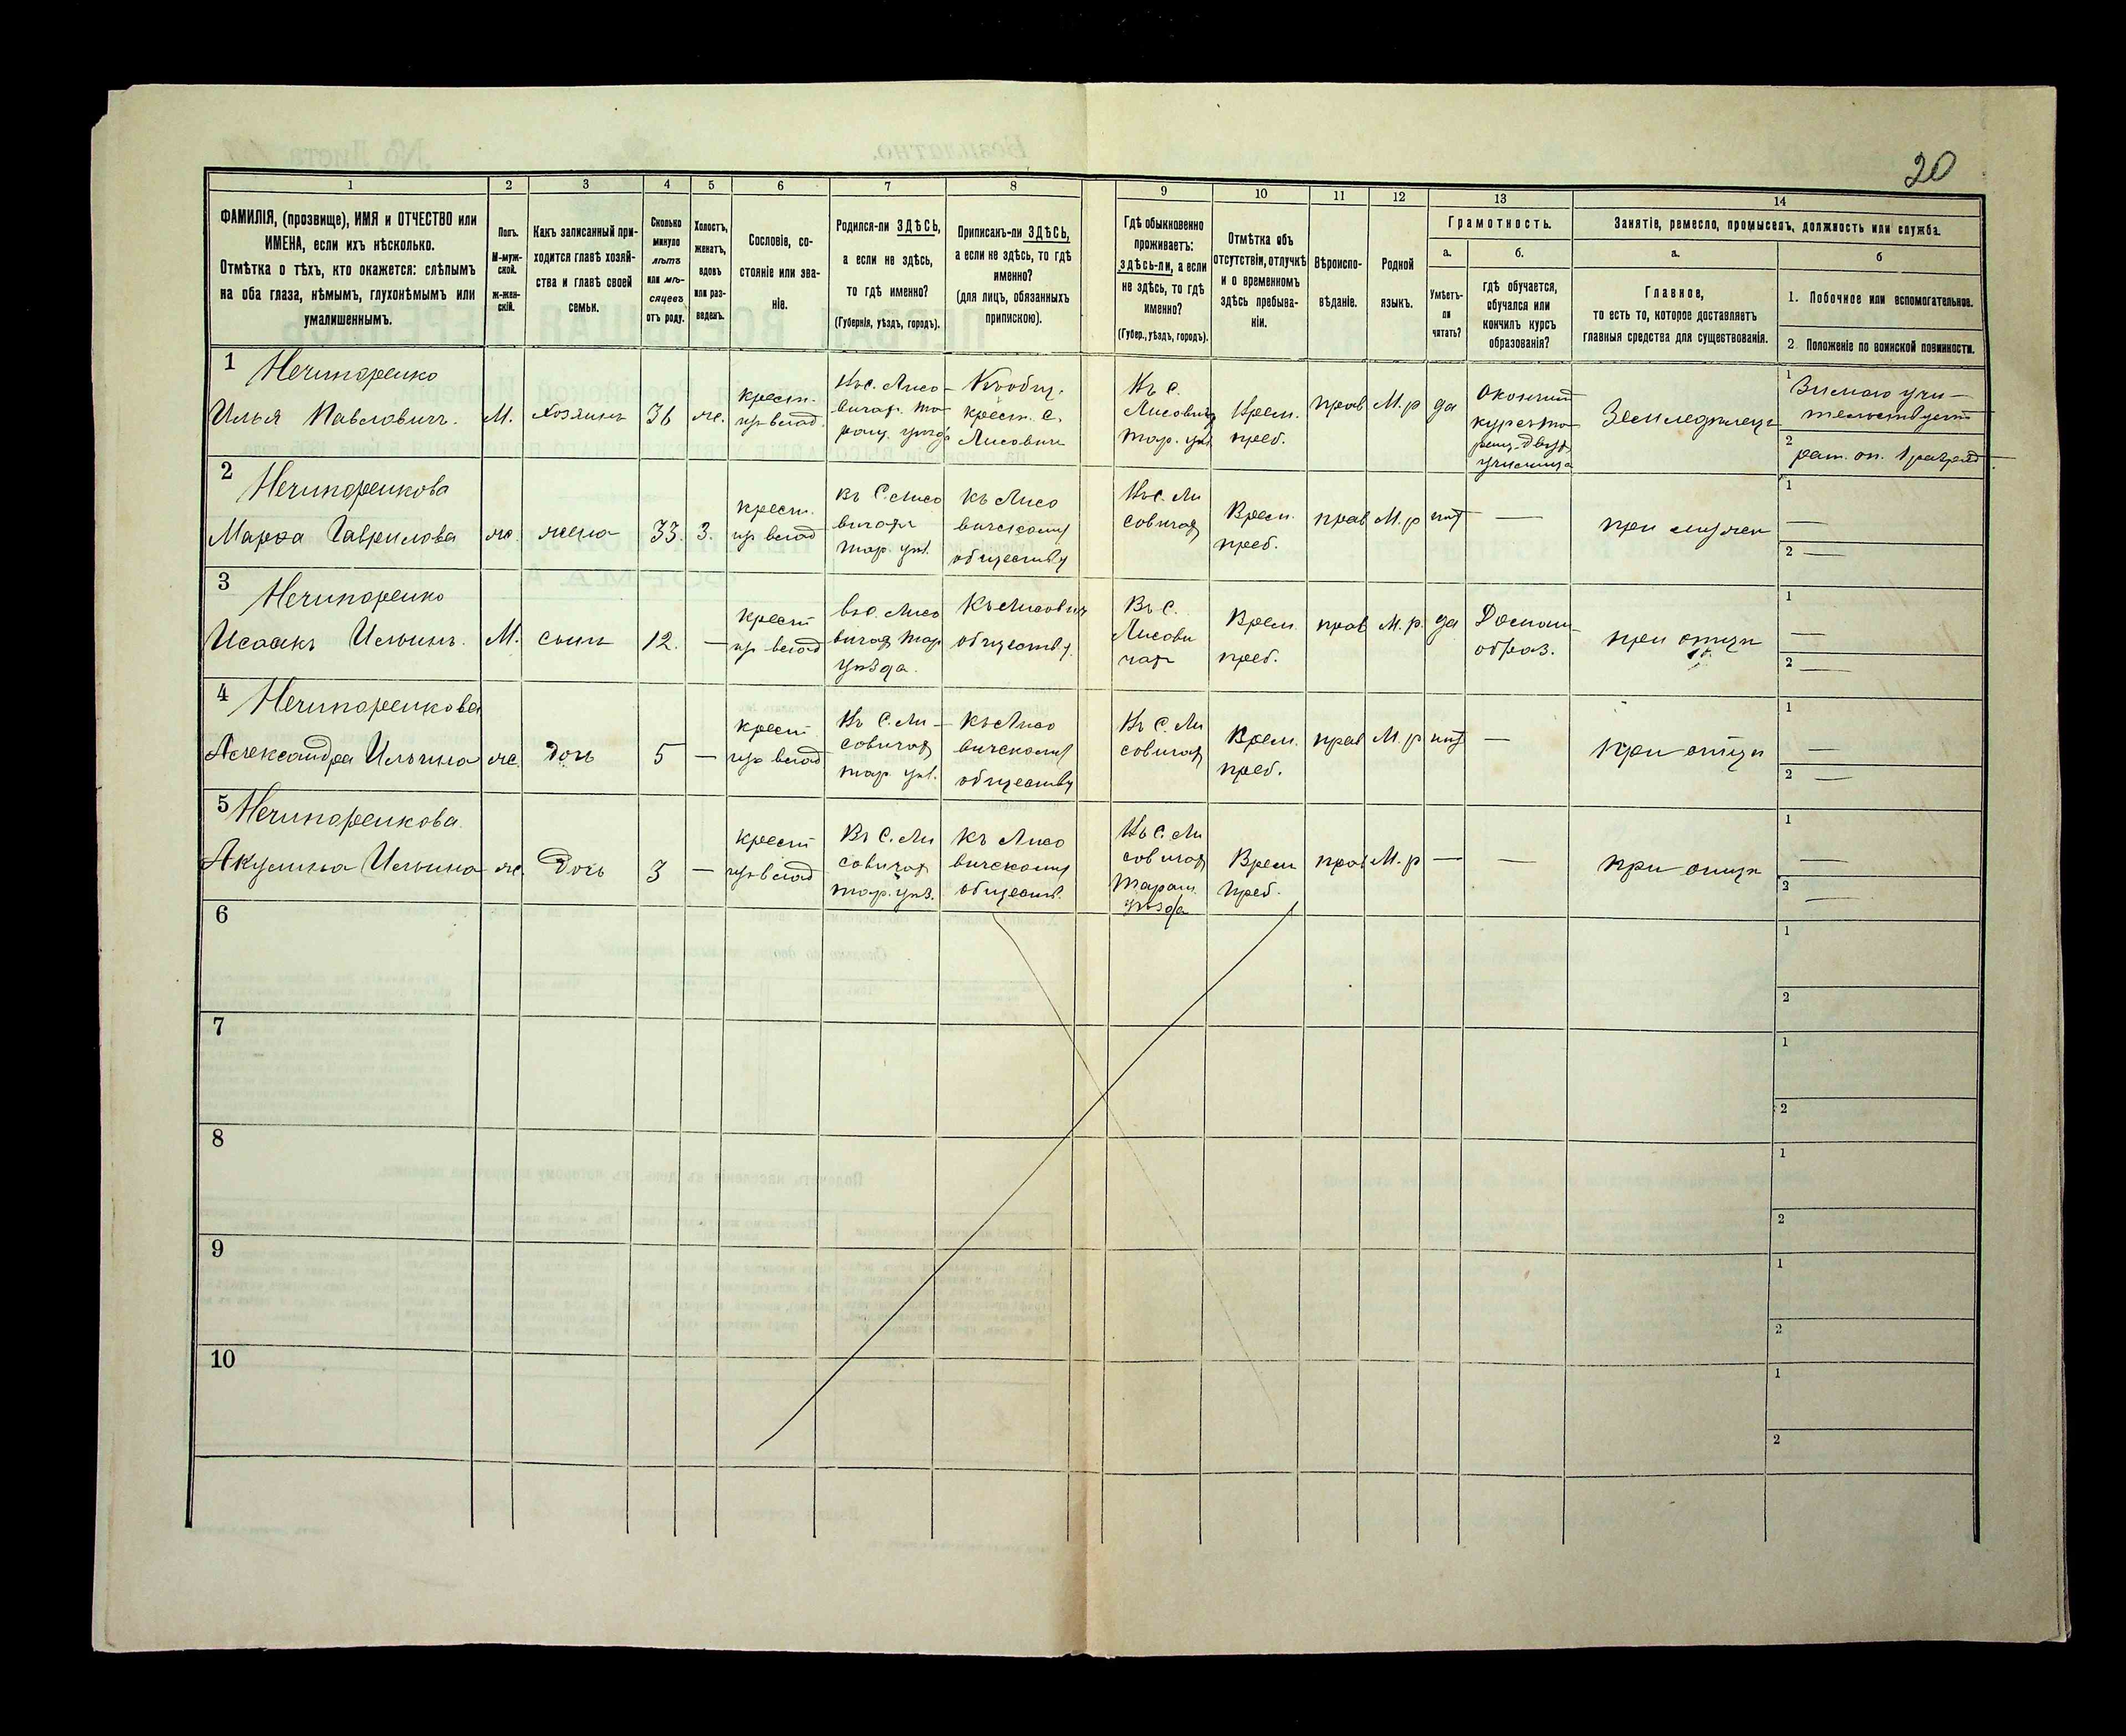 20
1 2 3 4 5 6 7 8 9 10 11 12 13 14
ФАМИЛІЯ, (прозвище), ИМЯ и ОТЧЕСТВО или
ИМЕНА, если ихъ нѣсколько.
Отмѣтка о тѣхъ, кто окажется: слѣпымъ
на оба глаза, нѣмымъ, глухонѣмымъ или
умалишеннымъ.
Полъ.
М-муж-
ской.
ж-жен-
скій.
Какъ записанный при-
ходится главѣ хозяй-
ства и главѣ своей
семьи.
Сколько
минуло
лѣтъ
или мѣ-
сяцевъ
отъ роду.
Холостъ,
женатъ,
вдовъ
или раз-
веденъ.
Сословіе, со-
стояніе или зва-
ніе.
Родился-ли ЗДѢСЬ,
а если не здѣсь,
то гдѣ именно?
(Губернія, уѣздъ, городъ).
Приписанъ-ли ЗДѢСЬ,
а если не здѣсь, то гдѣ
именно?
(для лицъ, обязанныхъ
припискою).
Гдѣ обыкновенно
проживаетъ:
здѣсь-ли, а если
не здѣсь, то гдѣ
именно?
(Губер., уѣздъ, городъ).
Отмѣтка объ
отсутствіи, отлучкѣ
и о временномъ
здѣсь пребыва-
ніи.
Вѣроиспо-
вѣданіе.
Родной
языкъ.
Грамотность.
а.
Умѣетъ-
ли
читать?
б.
гдѣ обучается,
обучался или
кончилъ курсъ
образованія?
Занятіе, ремесло, промыселъ, должность или служба.
а.
Главное,
то есть то, которое доставляетъ
главныя средства для существованія.
б
1. Побочное или вспомогательное.
2 Положеніе по воинской повинности.
1 Нечипоренко
Илья Павловичъ. М. хозяинъ 36 же.
крест.
изъ влад.
Въ с. Лисо-
вичах. Та-
ращ. уѣзда
Къ общ.
крест. с.
Лисович
Въ с.
Лисович
Тар. уѣз.
Врем.
преб.
прав М. р да
Окончил
курс та-
ращ. двух
училища
Земледѣлецъ
1 Зимою учи-
тельствует
2 рат. оп. 1 разряд
2 Нечипоренкова
Марфа Гаврилова же. жена 33. З.
крест.
из влад
въ с. Лисо
вичах
Тар. уѣз.
къ Лисо
вическому
обществу
Въ с. Ли
совичах
Врем.
преб.
прав М. р нѣт —
при мужеѣ
1 —
2 —
3 Нечипоренко
Исаакъ Ильинъ. М. сынъ 12. —
крест
из влад
въ с. Лисо
вичах Тар
уѣзда.
Къ Лисович
обществу.
Въ с.
Лисови
чах
Врем
преб.
прав М. р. да
Домашн-
образ.
при отцѣ
1 —
2 —
4 Нечипоренкова
Александра Ильина же. дочь 5 —
крест
из влад
Въ с. Ли-
совичах
Тар. уѣз.
къ Лисо
вическому
обществу
Въ с. Ли
совичах
Врем.
преб.
прав М. р нѣт —
при отцѣ
1 —
2 —
5 Нечипоренкова
Акулина Ильина же. Дочь 3 —
крест
из влад
Въ с. Ли
совичах
Тар. уѣз.
къ Лисо
вическому
обществ.
Въ с. Ли
совичах
Таращ.
уѣзда
Врем
преб.
прав М. р — —
при отцѣ
1 —
2 —
6 1
2
7 1
2
8 1
2
9 1
2
10 1
2